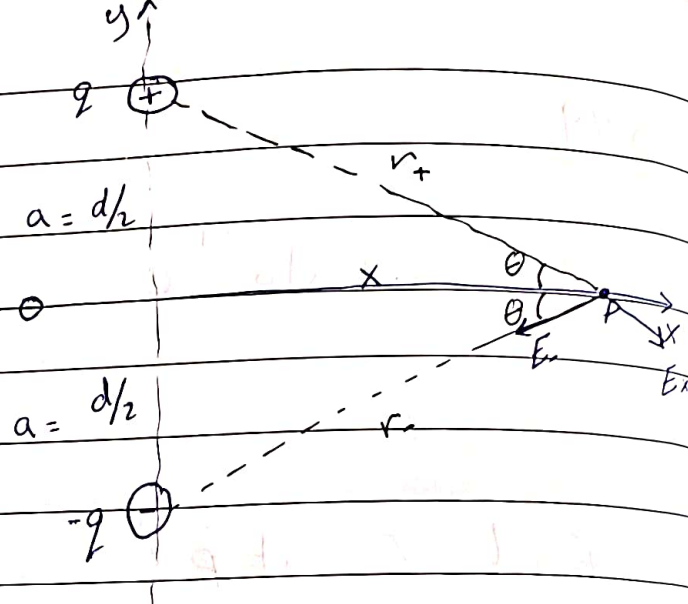 y
q +
r+
a = d/2
θ
x
O
θ
P
x
E-
a = d/2
r-
-q -